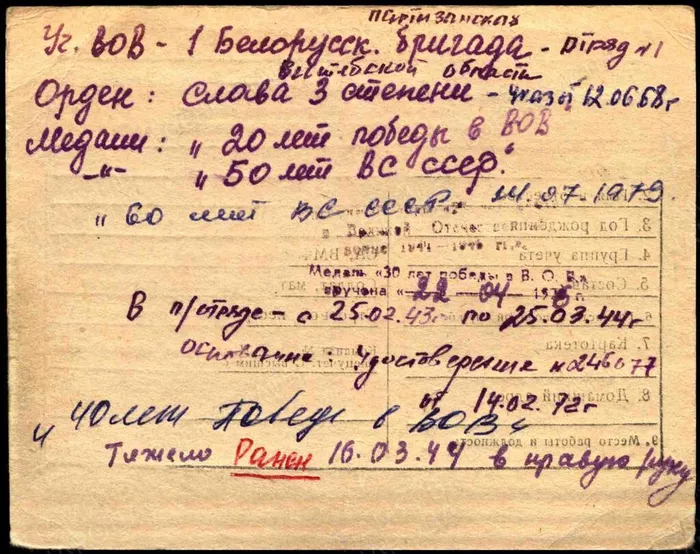 партизанская
Уч. ВОВ - 1 Белорусск. бригада - отряд №1
Витебской области
Орден: Слава 3 степени - указ от 12.06.68 г
Медали: „20 лет победы в ВОВ"
-„- „50 лет ВС СССР."
„60 лет ВС СССР. 1979.
Медаль «30 лет победы в В. О. В.»
вручена «22 — 04 — г.
В п/отряде - с 25.02.43г по 25.03.44г
основание удостоверение №
от 14.02.72г
„40 лет Победы в ВОВ"
Тяжело Ранен 16.03.44 в правую руку
3. Год рождения
4. Группа учета
5. Состав
7. Картотека
8. Домашний адрес
9. Место работы и должность